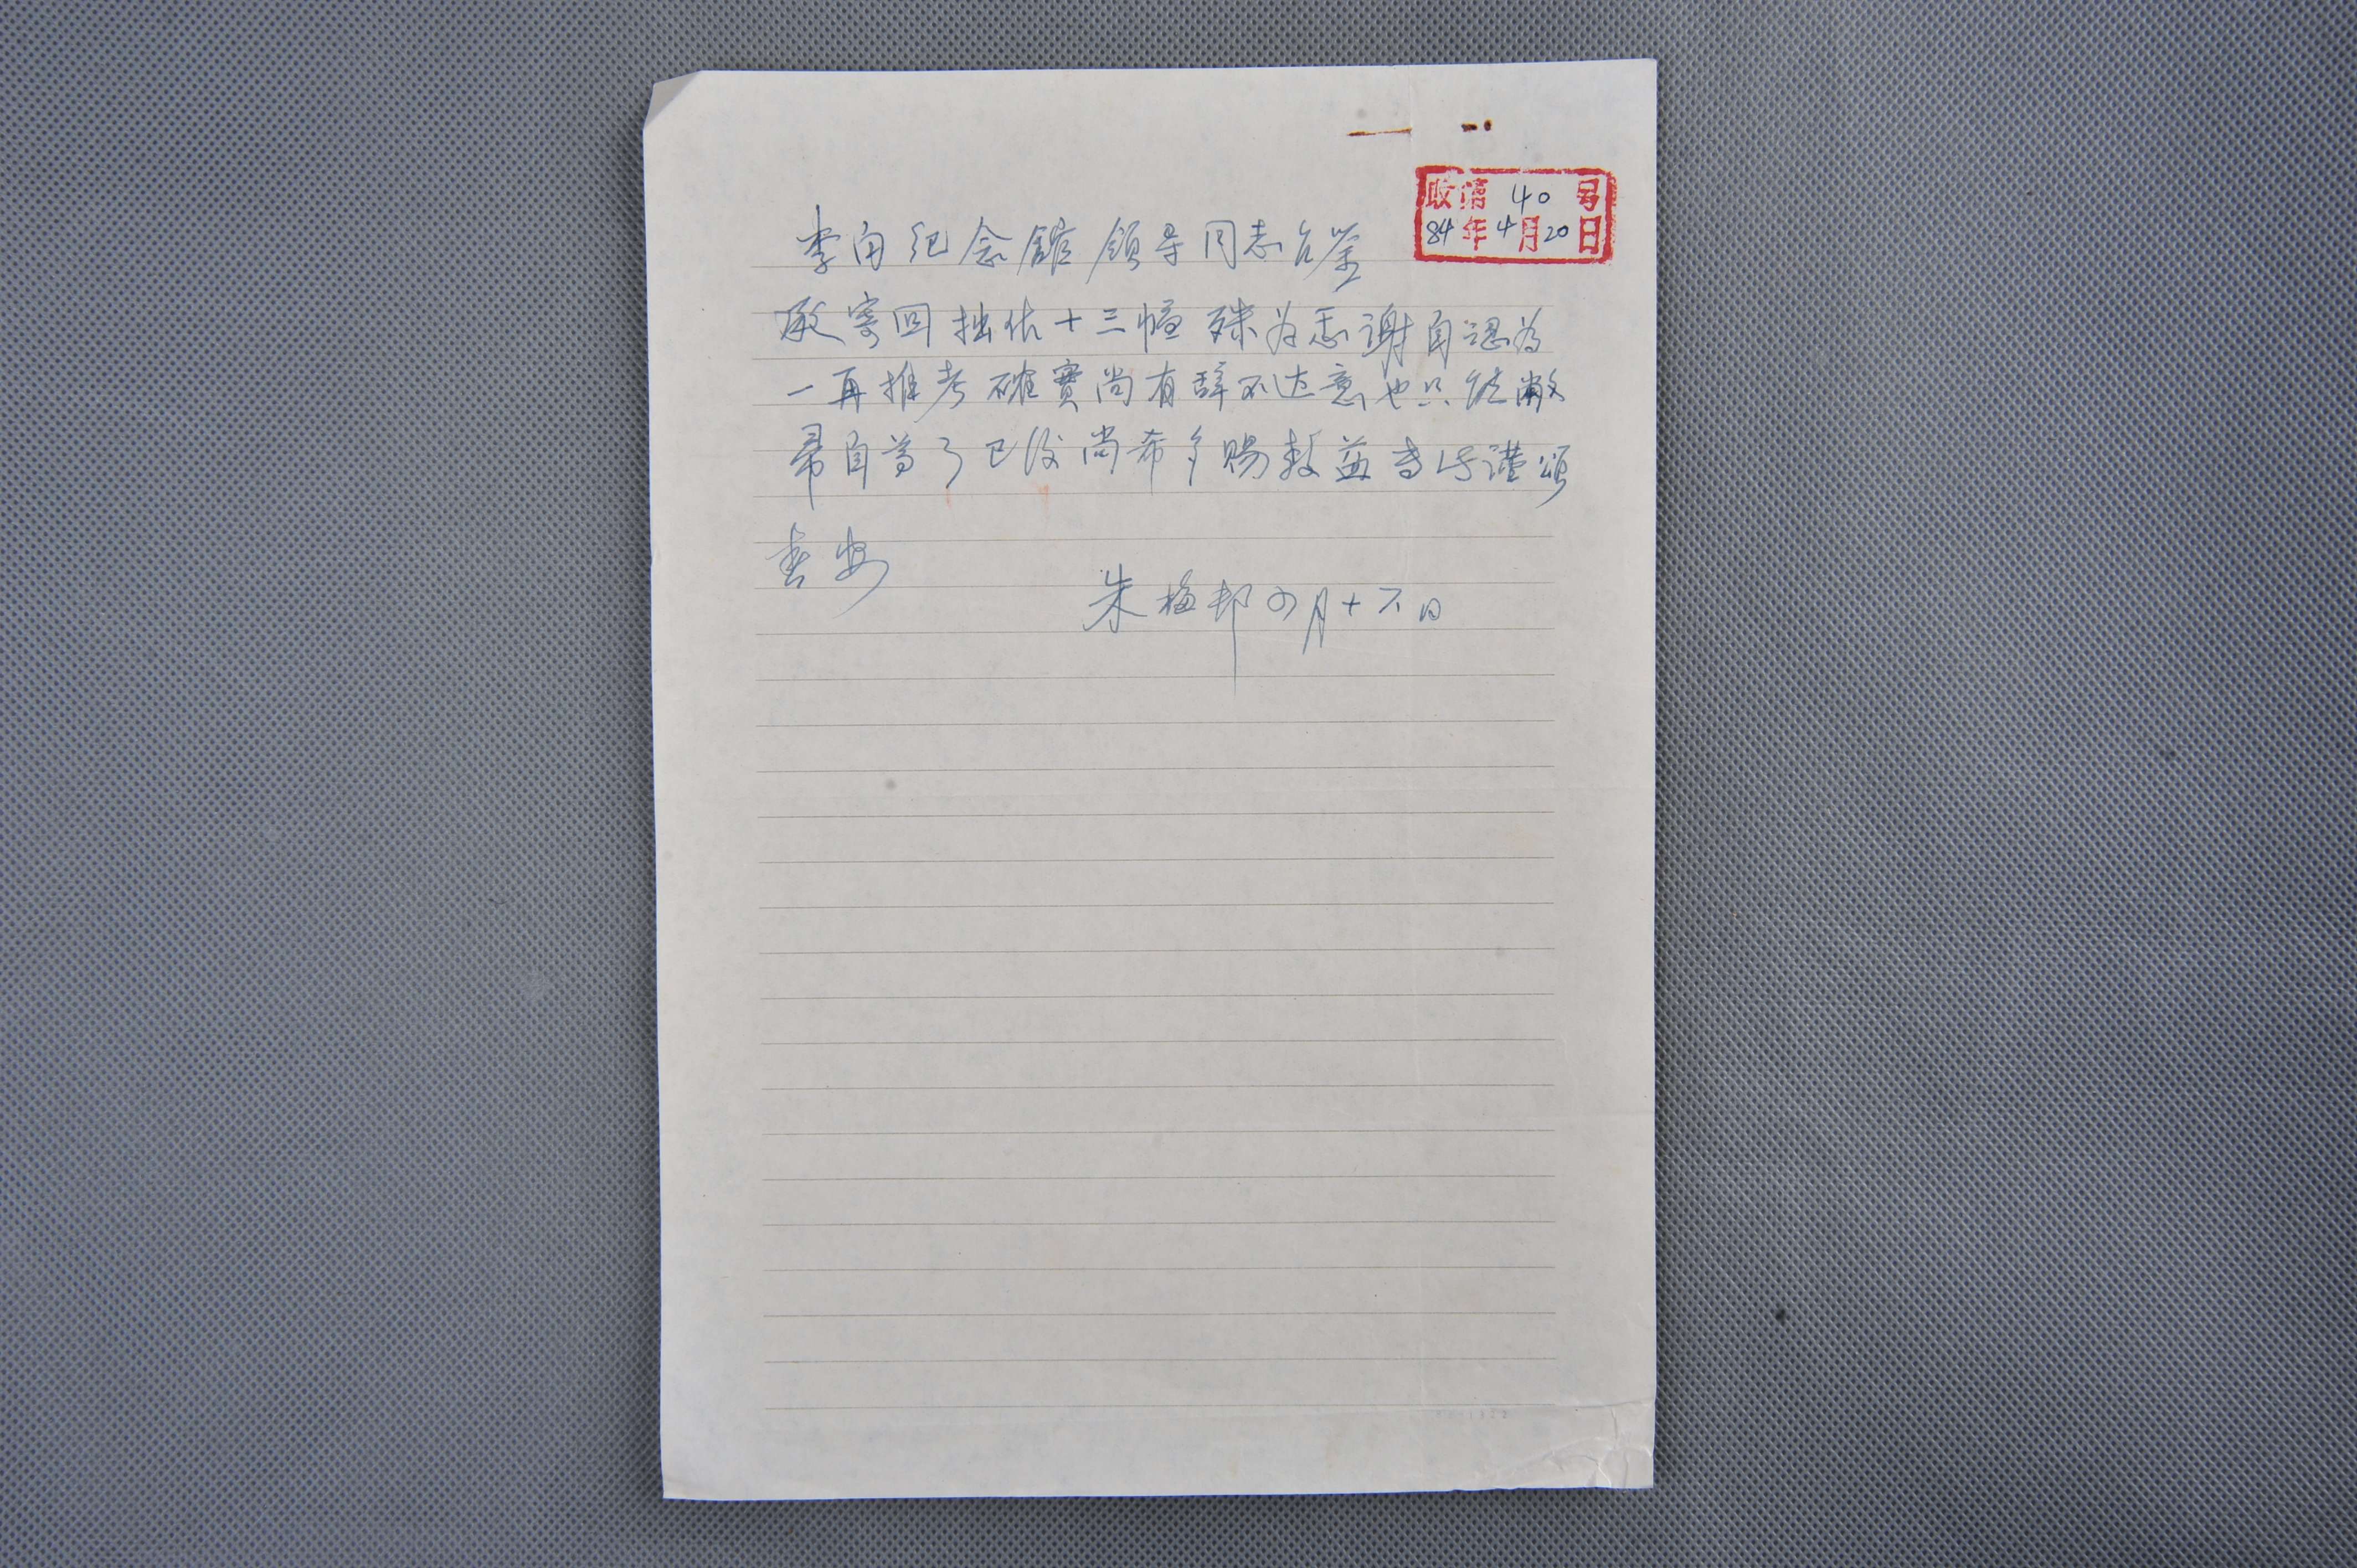 收 第 40 号
84 年 4 月 20 日
李白纪念館领导同志台鉴
承寄回拙作十三幅殊为感謝自認为
一再推考確實尚有辞不达意也只能敝
帚自为了已后尚希多赐教益专此谨颂
春安
朱梅邨四月十六日